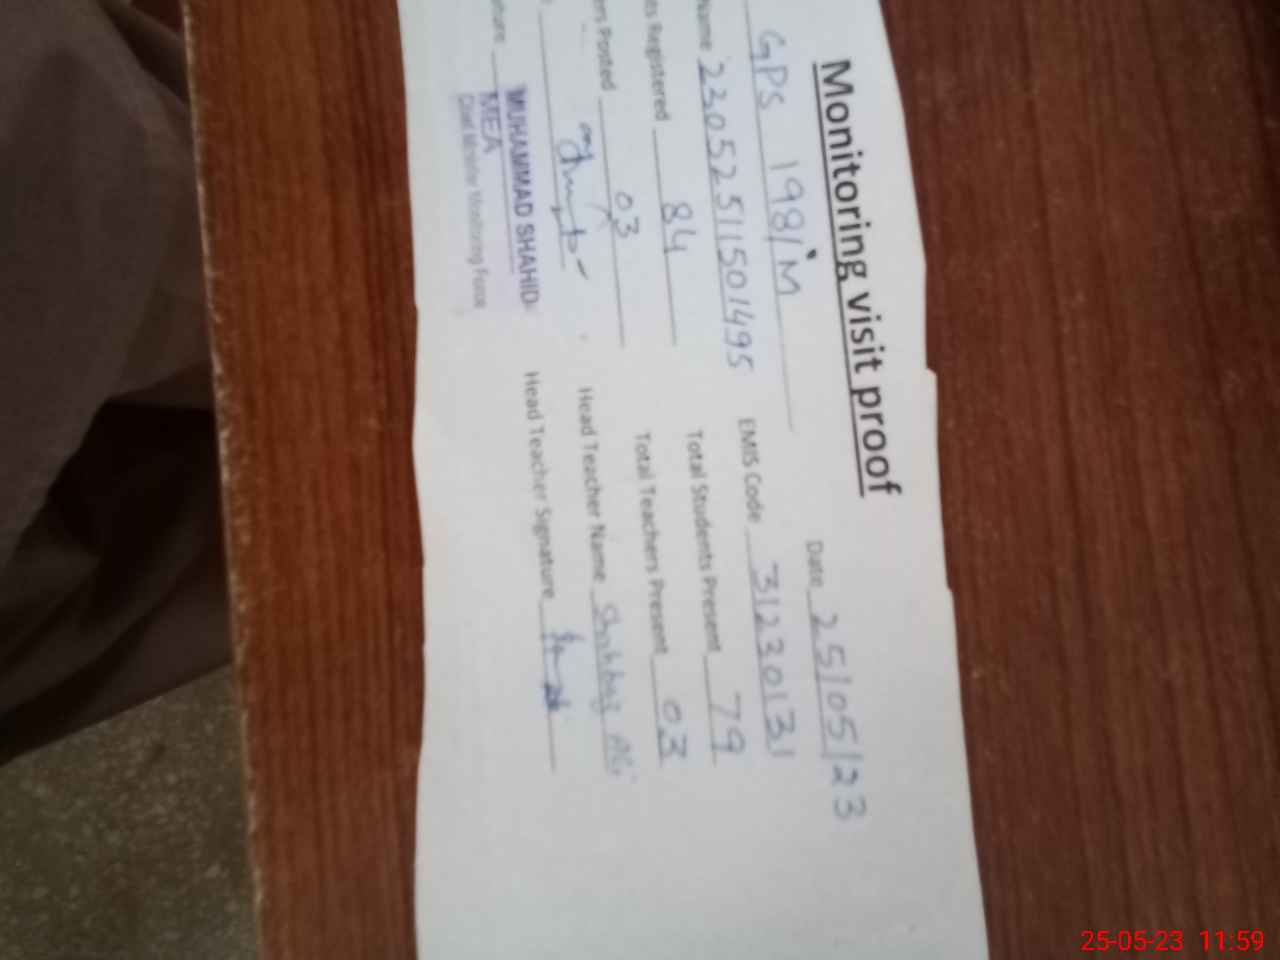 Monitoring visit proof
Date 25/05/23
GPS 198/M
EMIS Code 31230131
Name 2305252511501495
Total Students Present 79
ts Registered 84
Total Teachers Present 03
ers Posted 03
Head Teacher Name
Head Teacher Signature
MUHAMMAD SHAHID
MEA
Chief Minister Monitoring Force
25-05-23 11:59